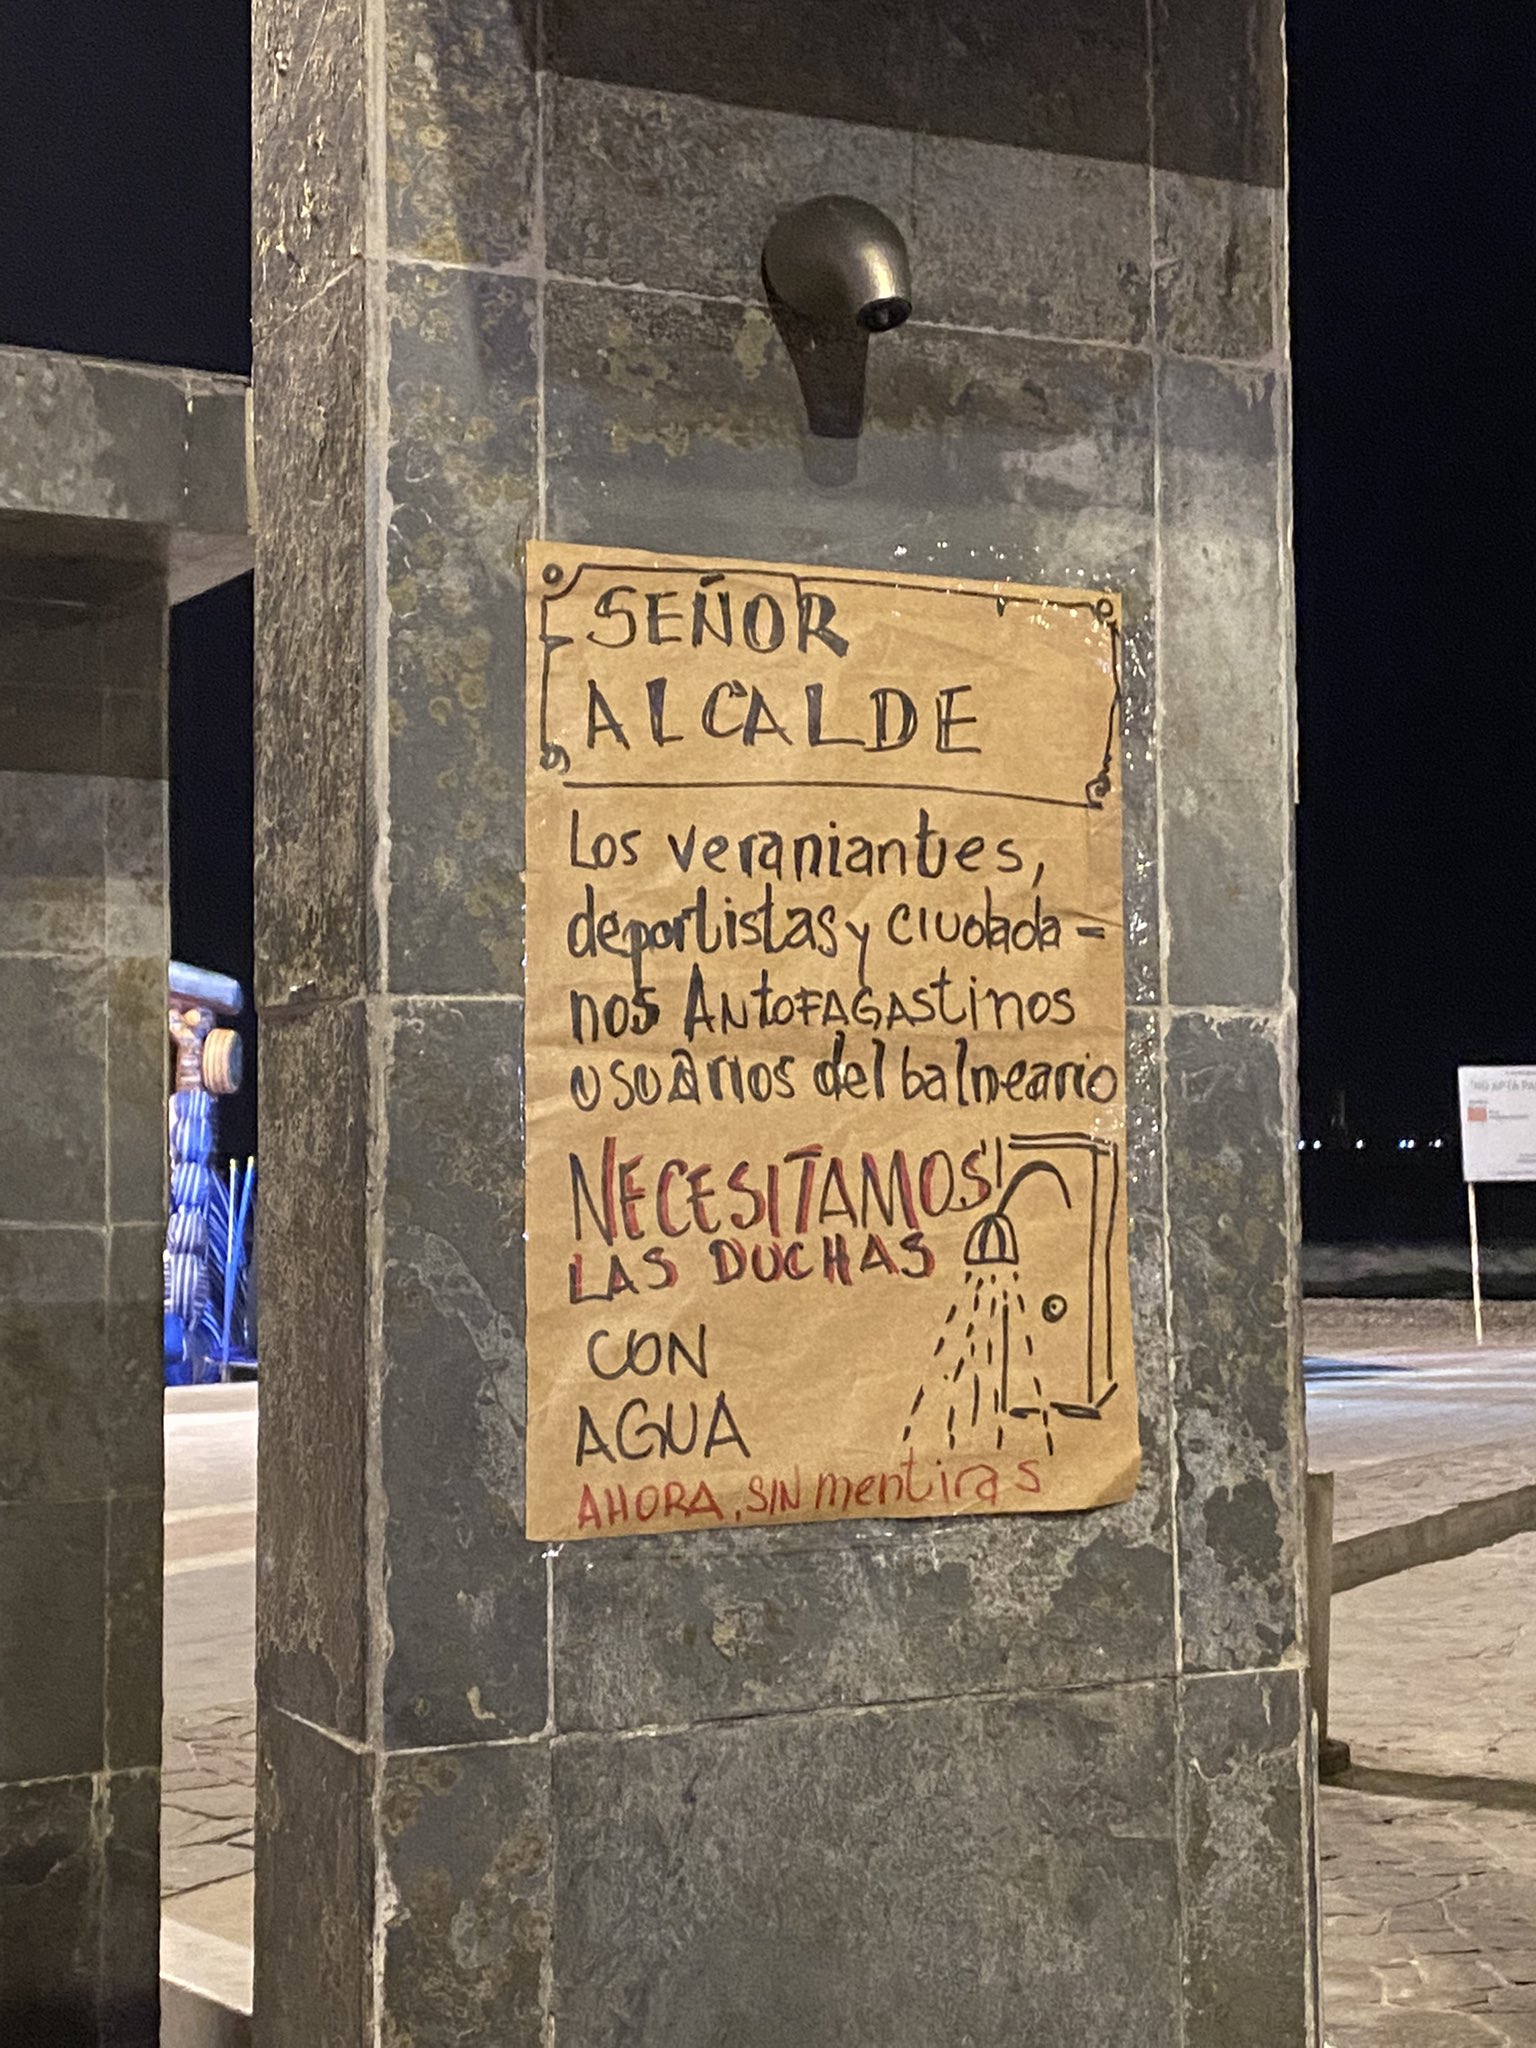 SEÑOR
ALCALDE
Los veraniantes,
deportistas y ciudada-
nos ANtoFAGAStinos
usuarios del balneario
NECESITAMOS
LAS DUCHAS
CON
AGUA
AHORA, SIN mentiras